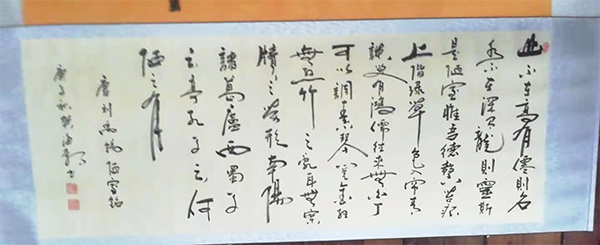 山不在高有僊則名
水不在深有龍則靈斯
是陋室惟吾德馨苔痕
上階綠草色入帘青
談笑有鴻儒往来無白丁
可以調素琴閱金經
無絲竹之亂耳無案
牘之勞形南陽
諸葛廬西蜀子
云亭孔子云何
陋之有
唐刘禹锡陋室铭
庚子秋